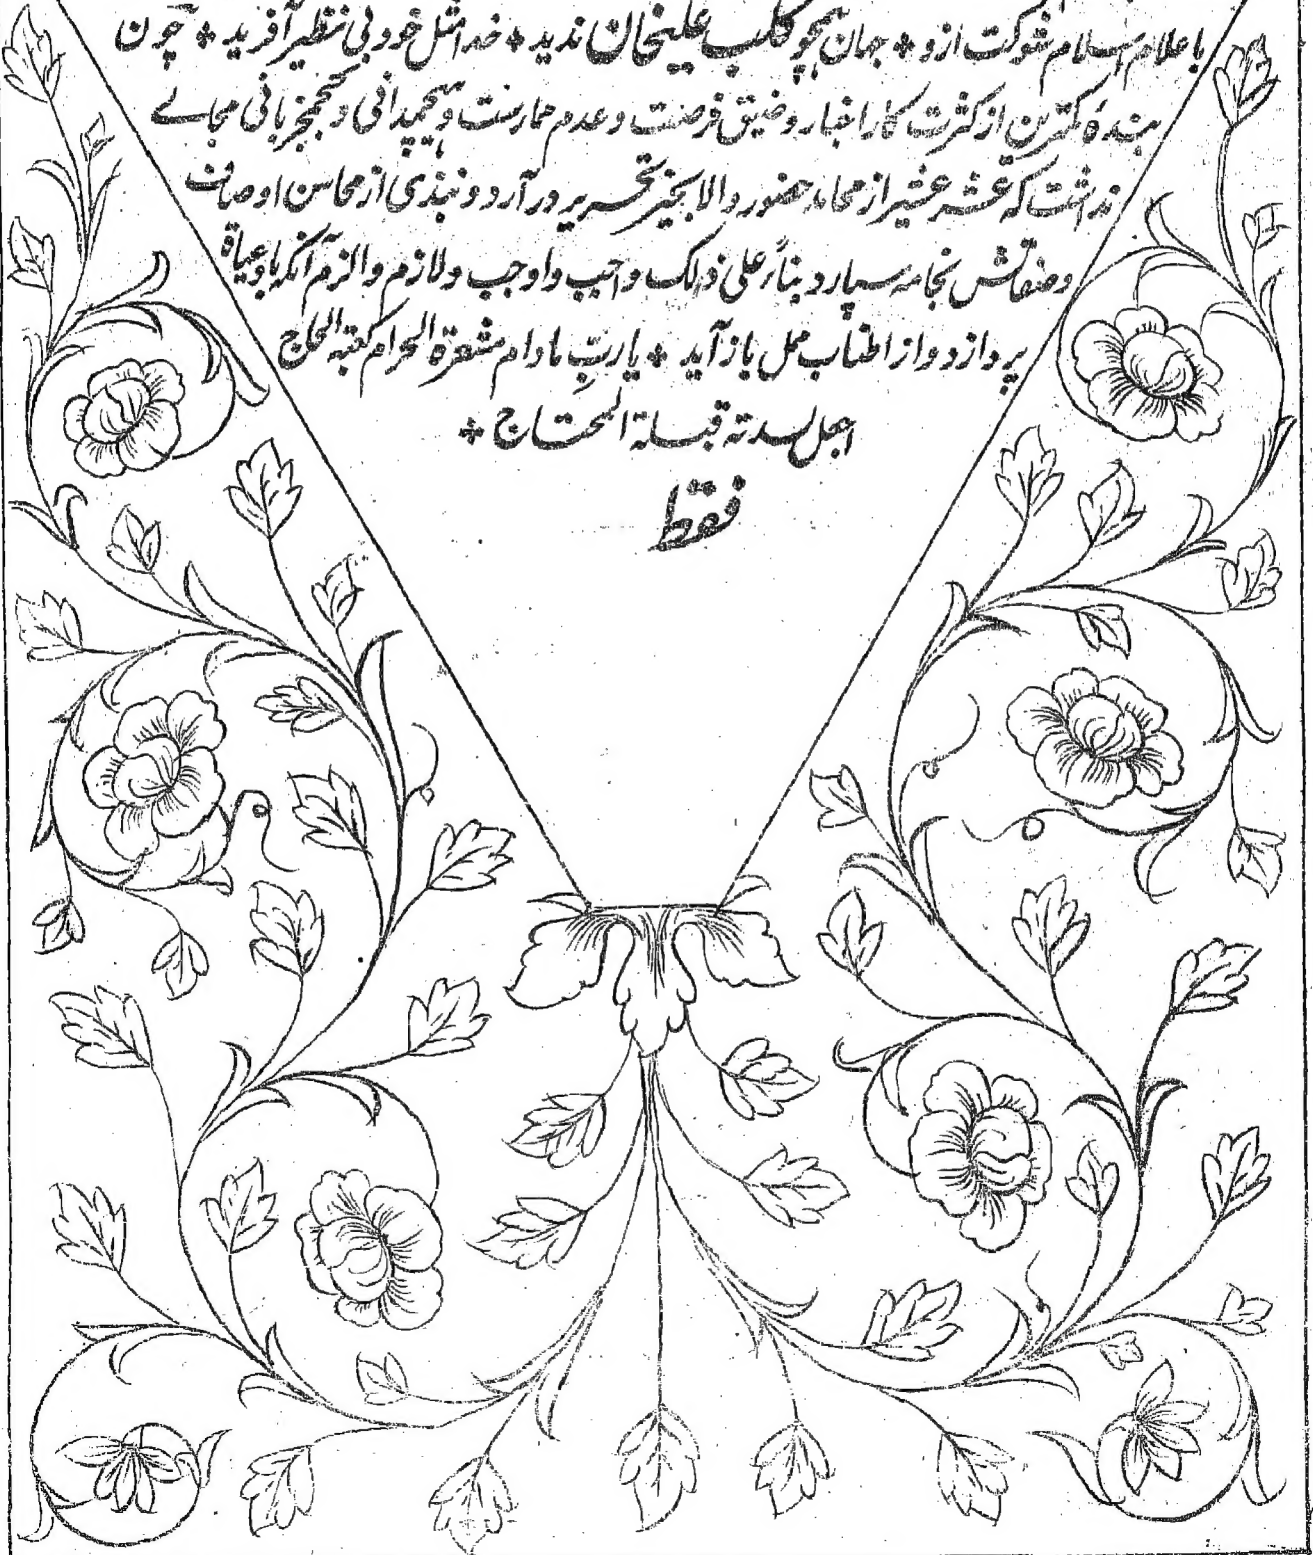 باعلام اسلام شوکت ازو ٭ جهان همچو کلب علیخان ندید ٭ خدا مثل خود بی نظیر آفرید ٭ چون
بندهٔ کمترین از کثرت کار اخبار و ضیق فرصت و عدم ممارست و هیچمدانی و کجمج زبانی مجالے
نداشت که عشر عشیر از محامد حضور والا بحیز تحریر در آرد و نبذی از محاسن اوصاف
وصفاتش بخامه سپارد بناءً علی ذلک واجب و اوجب و لازم و الزم آنکه با وعیاة
پردازد و از اطناب ممل باز آید ٭ یا رب مادام مشعرة الحرام کعبة الحاج
اجعل سدته قبلة المحتاج ٭
فقط